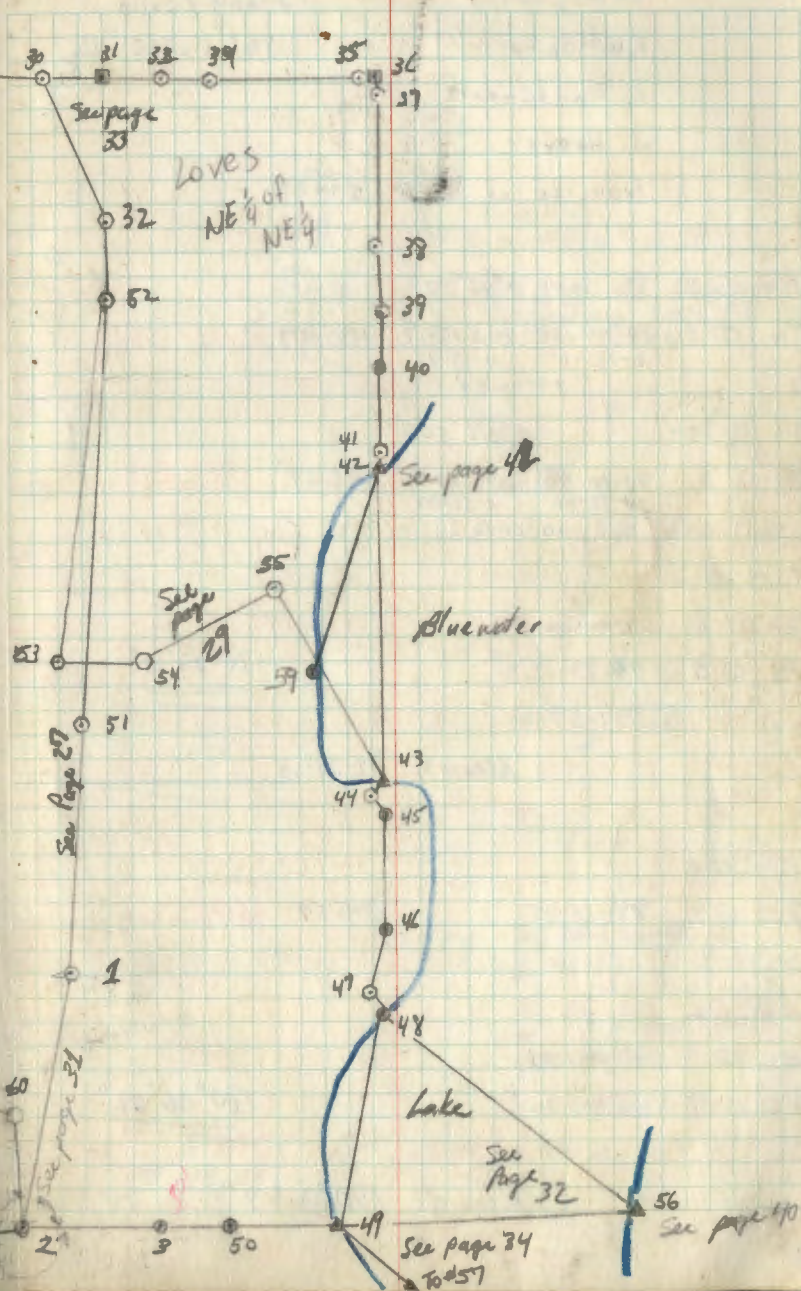 30 31 33 34 35 36
37
See page
33
Loves
NE 1/4 of
NE 1/4
32
38
52
39
40
41
42
See page 42
55
See
page
29
Bluewater
53
54
59
51
See Page 27
43
44
45
46
1
47
48
60
See page 31
Lake
See
Page 32
56
See page 40
2
3
50
49
See page 34
To #57